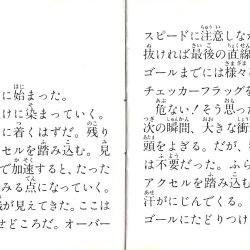 に始まった。
けに染まっていく。
に着くはずだ。残り
セルを踏み込む。見
で加速すると、たった
みる点になっていく。
が見えてきた。ここは
せどころだ。オーバー
スピードに注意しな
抜ければ最後の直線
ゴールまでには様々
チェッカーフラッグを
危ない！そう思っ
次の瞬間、大きな衝
頭をよぎる。だが、
は不要だった。ふら
アクセルを踏み込む
汗がにじんでくる。
ゴールにたどりつけ